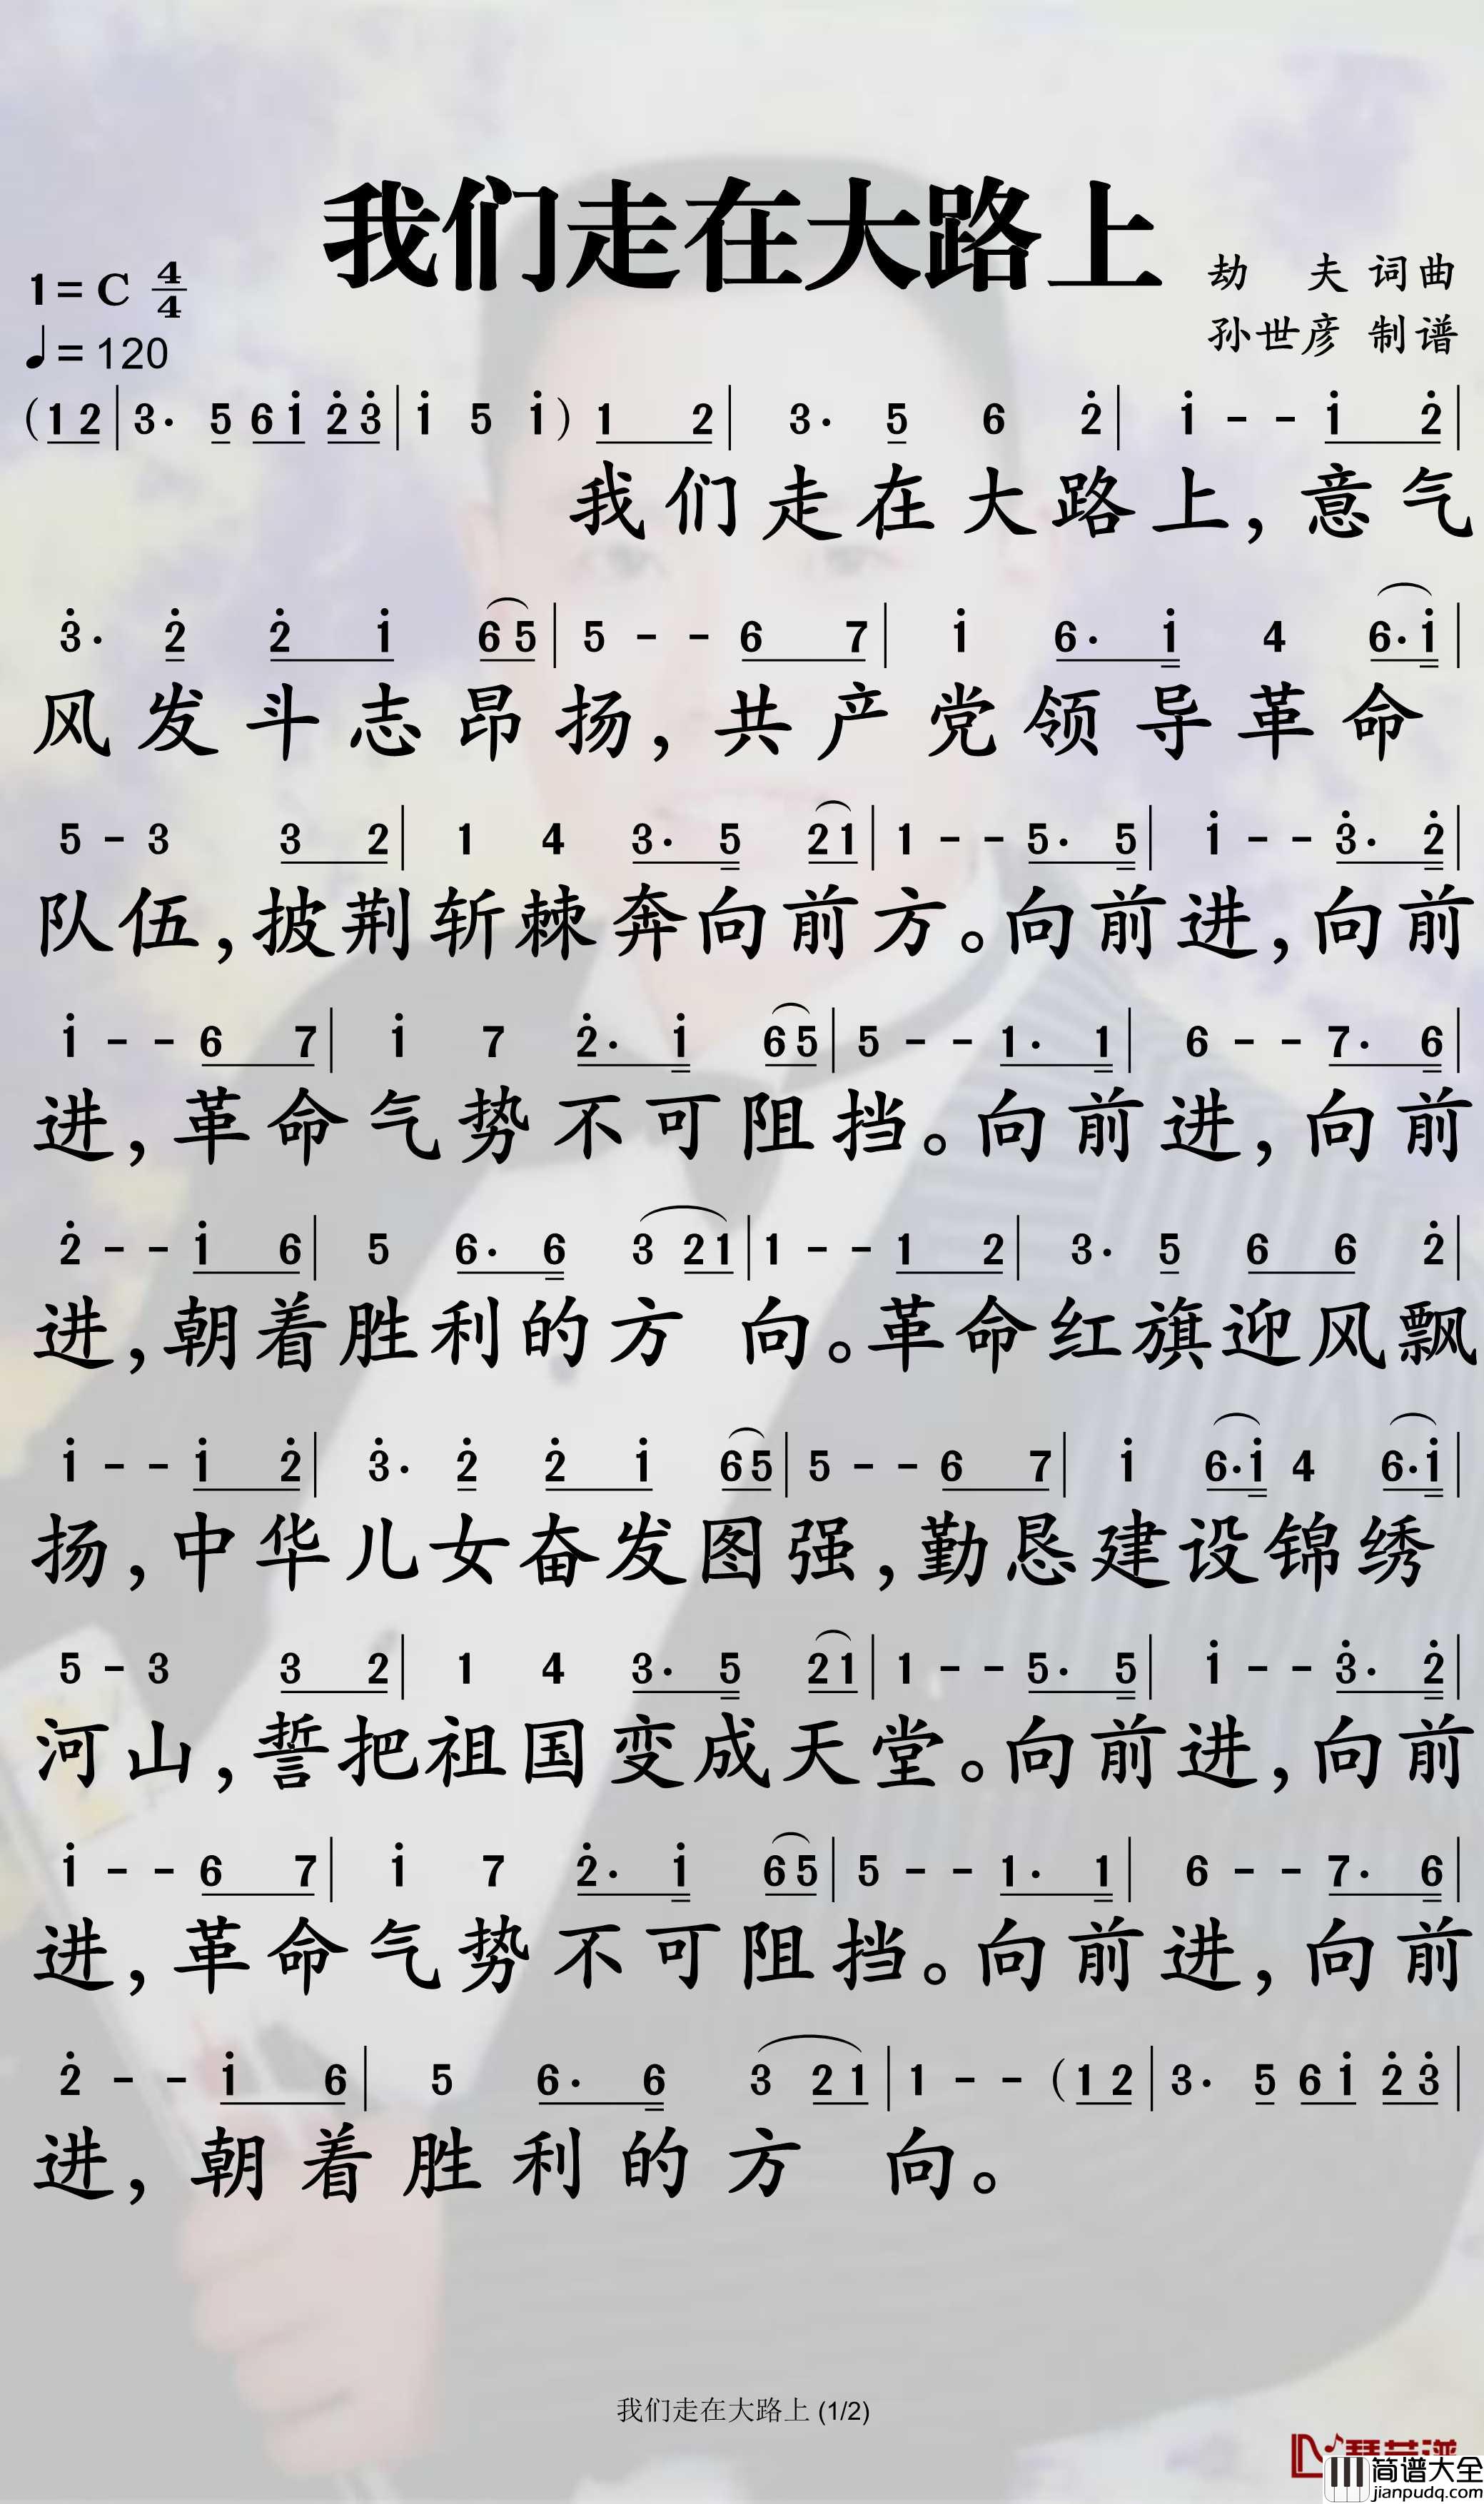 我们走在大路上
1=C 4/4
♩=120
劫 夫 词曲
孙世彦 制谱
(1 2|3· 5 6 i̇ 2̇ 3̇|i̇ 5 i̇) 1 2|3· 5 6 2̇|i̇ - - i̇ 2̇|
我们走在大路上,意气
3̇· 2̇ 2̇ i̇ 6 5|5 - - 6 7|i̇ 6· i̇ 4 6· i̇|
风发斗志昂扬,共产党领导革命
5 - 3 3 2|1 4 3· 5 2 1|1 - - 5· 5|i̇ - - 3̇· 2̇|
队伍,披荆斩棘奔向前方。向前进,向前
i̇ - - 6 7|i̇ 7 2̇· i̇ 6 5|5 - - 1· 1|6 - - 7· 6|
进,革命气势不可阻挡。向前进,向前
2̇ - - i̇ 6|5 6· 6 3 2 1|1 - - 1 2|3· 5 6 6 2̇|
进,朝着胜利的方 向。革命红旗迎风飘
i̇ - - i̇ 2̇|3̇· 2̇ 2̇ i̇ 6 5|5 - - 6 7|i̇ 6· i̇ 4 6· i̇|
扬,中华儿女奋发图强,勤恳建设锦绣
5 - 3 3 2|1 4 3· 5 2 1|1 - - 5· 5|i̇ - - 3̇· 2̇|
河山,誓把祖国变成天堂。向前进,向前
i̇ - - 6 7|i̇ 7 2̇· i̇ 6 5|5 - - 1· 1|6 - - 7· 6|
进,革命气势不可阻挡。向前进,向前
2̇ - - i̇ 6|5 6· 6 3 2 1|1 - - (1 2|3· 5 6 i̇ 2̇ 3̇|
进,朝着胜利的方 向。
我们走在大路上 (1/2)
简谱大全
jianpudq.com